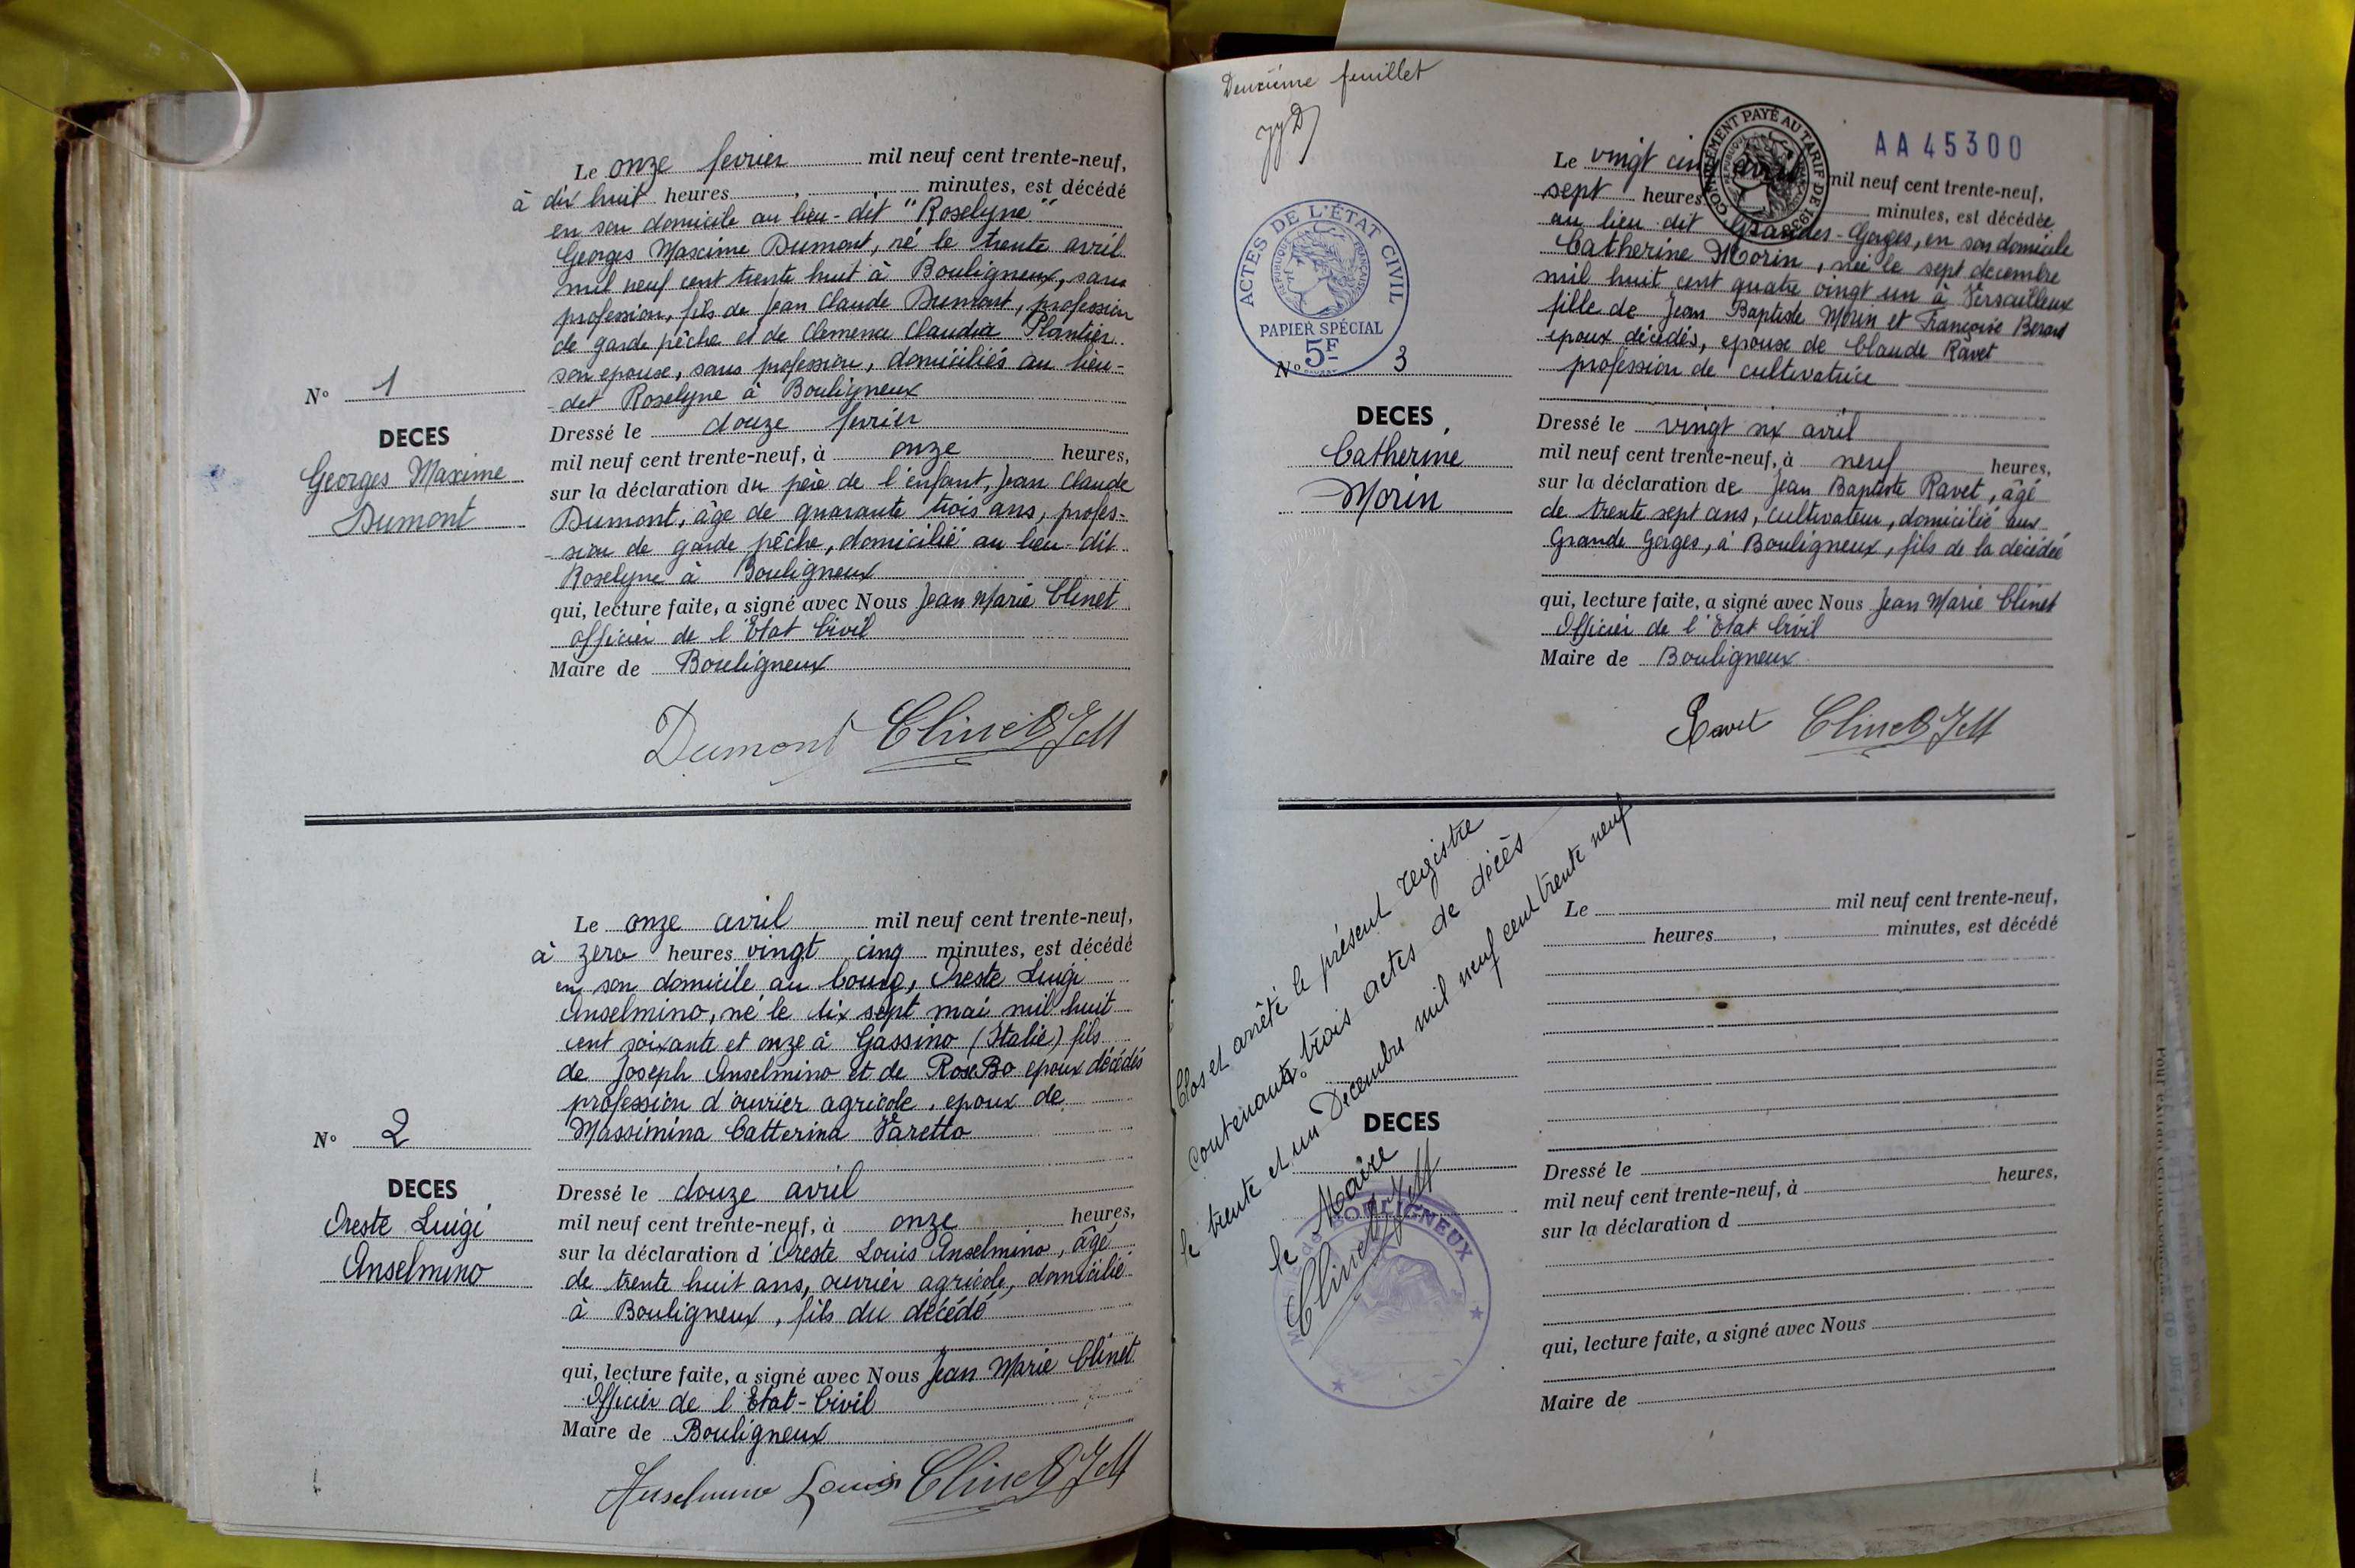 Le onze fevrier mil neuf cent trente-neuf,
à dix huit heures, minutes, est décédé
en son domicile au lieu-dit "Roselyne"
Georges Maxime Dumont, né le trente avril
mil neuf cent trente huit à Bouligneux, sans
profession, fils de Jean Claude Dumont, profession
de garde pêche et de Clemence Claudia Plantier
son epouse, sans profession, domiciliés au lieu-
dit Roselyne à Bouligneux
N° 1
DECES
Georges Maxime
Dumont
Dressé le douze fevrier
mil neuf cent trente-neuf, à onze heures,
sur la déclaration du père de l'enfant, Jean Claude
Dumont, âge de quarante trois ans, profes-
sion de garde pêche, domicilié au lieu-dit
Roselyne à Bouligneux
qui, lecture faite, a signé avec Nous Jean Marie Clinet
Officier de l'Etat Civil
Maire de Bouligneux
Dumont Clinet JM
Le onze avril mil neuf cent trente-neuf,
à zero heures vingt cinq minutes, est décédé
en son domicile au bourg, Oreste Luigi
Anselmino, né le dix sept mai mil huit
cent soixante et onze à Gassino (Italie) fils
de Joseph Anselmino et de Rose Bo epoux décédés
profession d'ouvrier agricole, epoux de
Massimina Catterina Varetto
N° 2
DECES
Oreste Luigi
Anselmino
Dressé le douze avril
mil neuf cent trente-neuf, à onze heures,
sur la déclaration d'Oreste Louis Anselmino, âgé
de trente huit ans, ouvrier agricole, domicilié
à Bouligneux, fils du décédé
qui, lecture faite, a signé avec Nous Jean Marie Clinet
Officier de l'Etat-Civil
Maire de Bouligneux
Anselmino Louis Clinet JM
Deuxième feuillet
AA45300
COMPLÉMENT PAYÉ AU TARIF DE 1938
ACTES DE L'ÉTAT CIVIL
RÉPUBLIQUE FRANÇAISE
PAPIER SPÉCIAL
5F
Le vingt cinq avril mil neuf cent trente-neuf,
sept heures minutes, est décédée
au lieu dit Grandes-Gorges, en son domicile
Catherine Morin, née le sept decembre
mil huit cent quatre vingt un à Versailleux
fille de Jean Baptiste Morin et Françoise Berard
epoux décédés, epouse de Claude Ravet
profession de cultivatrice
N° 3
DECES
Catherine
Morin
Dressé le vingt six avril
mil neuf cent trente-neuf, à neuf heures,
sur la déclaration de Jean Baptiste Ravet, âgé
de trente sept ans, cultivateur, domicilié aux
Grande Gorges, à Bouligneux, fils de la décédée
qui, lecture faite, a signé avec Nous Jean Marie Clinet
Officier de l'Etat Civil
Maire de Bouligneux
Ravet Clinet JM
Clos et arrêté le présent registre
contenant trois actes de décès
le trente et un Décembre mil neuf cent trente neuf
le Maire
Clinet JM
BOULIGNEUX
Le mil neuf cent trente-neuf,
heures, minutes, est décédé
N°
DECES
Dressé le
mil neuf cent trente-neuf, à heures,
sur la déclaration d
qui, lecture faite, a signé avec Nous
Maire de